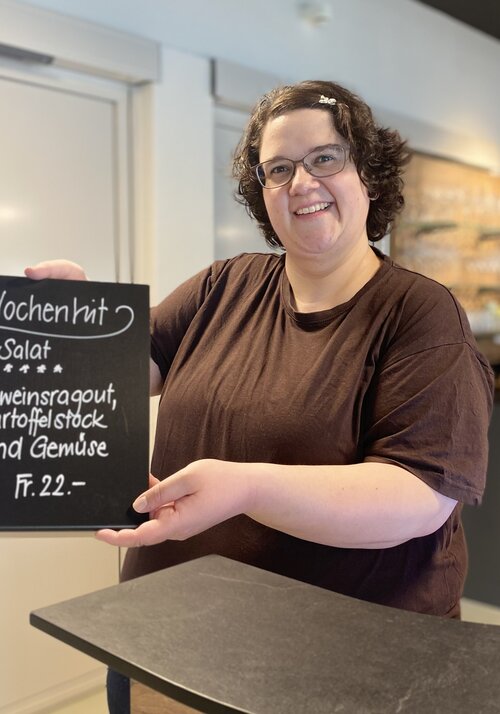 Wochenhit
Salat
****
weinsragout,
artoffelstock
nd Gemüse
Fr. 22.-